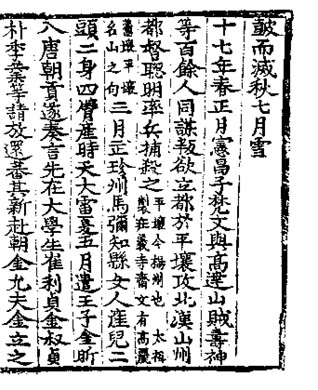 皷而滅秋七月雪
十七年春正月憲昌子梵文與高達山賊壽神
等百餘人同謀叛欲立都於平壤攻北漢山州
都督聰明率兵捕殺之平壤今楊州也太祖製在義寺齋文有高麗
舊壤平壤名山之句三月武珍州馬彌知縣女人産兒二
頭二身四臂産時天大雷夏五月遣王子金昕
入唐朝貢遂奏言先在大學生崔利貞金叔貞
朴季業等請放還蕃其新赴朝金允夫金立之